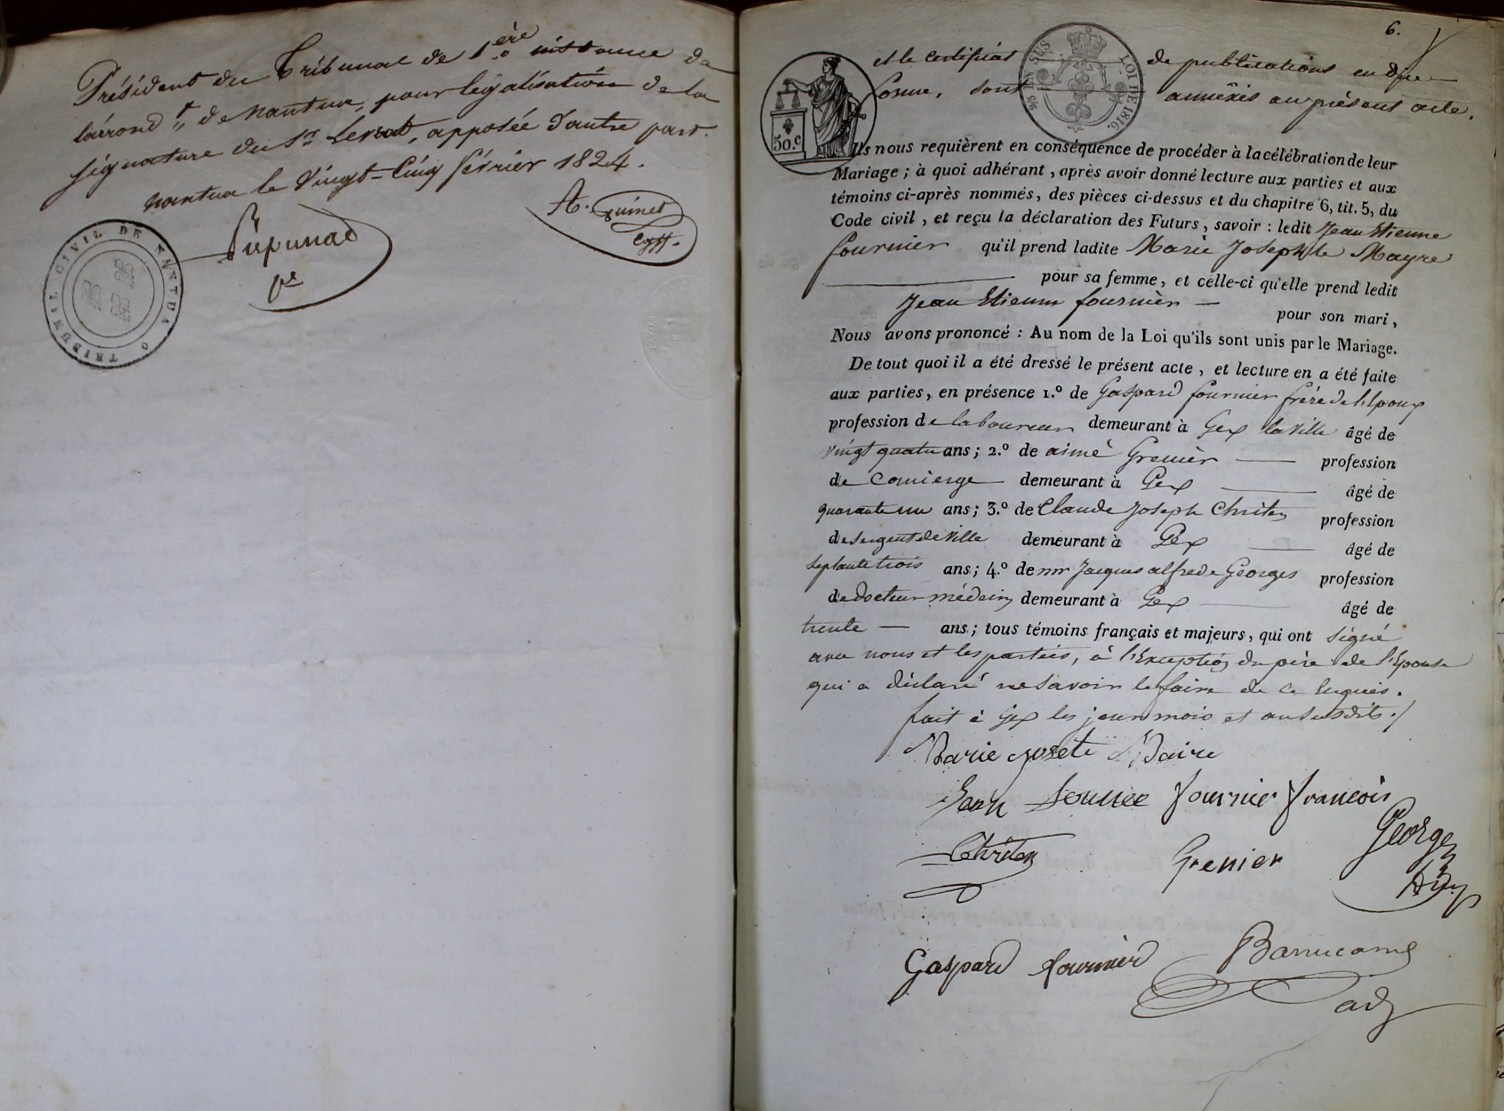 Président du Tribunal de 1.ère instance de
l'airond.t de Nantua, pour légalisation de la
signature du S.r Levrat, apposée d'autre part.
nantua le Vingt-Cinq février 1824.
A. Guinet
TRIBUNAL CIVIL DE NANTUA
6.
et le certificat de publications en due
forme, sont annéxés au présent acte.
LOI DE 1816.
EN SUS
50.C
Ils nous requièrent en conséquence de procéder à la célébration de leur
Mariage ; à quoi adhérant, après avoir donné lecture aux parties et aux
témoins ci-après nommés, des pièces ci-dessus et du chapitre 6, tit. 5, du
Code civil, et reçu la déclaration des Futurs, savoir : ledit Jean Etienne
fournier qu'il prend ladite Marie Josephte Mayre
pour sa femme, et celle-ci qu'elle prend ledit
Jean Etienne fournier
pour son mari,
Nous avons prononcé : Au nom de la Loi qu'ils sont unis par le Mariage.
De tout quoi il a été dressé le présent acte, et lecture en a été faite
aux parties, en présence 1.º de Gaspard fournier frère de l'Epoux
profession de laboureur demeurant à Gex la ville âgé de
vingt quatre ans ; 2.º de aimé Grenier profession
de concierge demeurant à Gex âgé de
quarante un ans ; 3.º de Claude Joseph Christen profession
de sergent de ville demeurant à Gex âgé de
septante trois ans ; 4.º de mr Jacques alfred Georges profession
de docteur médecin demeurant à Gex âgé de
trente ans ; tous témoins français et majeurs, qui ont signé
avec nous et les parties, à l'exception du père de l'Epouse
qui a déclaré ne savoir le faire de ce enquis.
fait à Gex les jour mois et an susdits.
Marie Josete
Jean fournier françois
Christen Grenier George
Gaspard fournier
adj